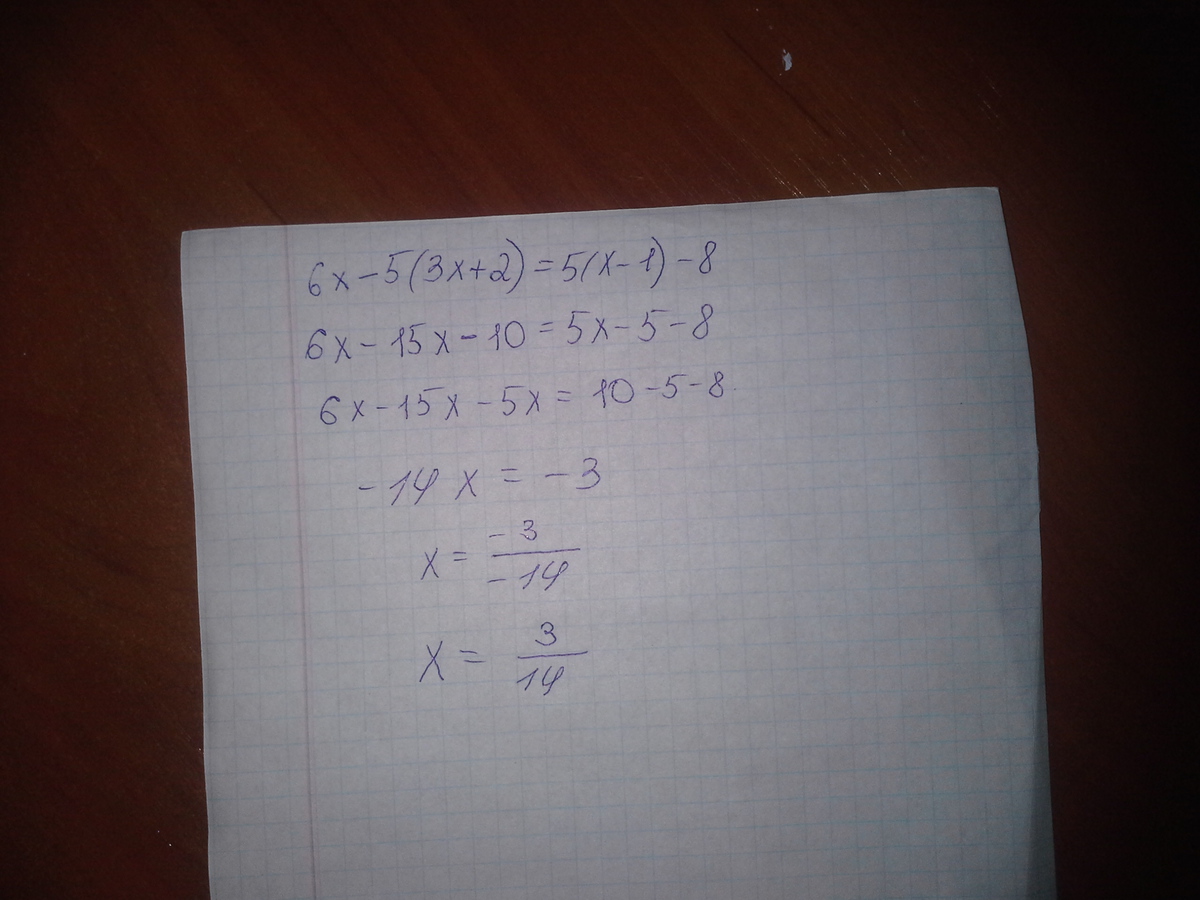 6x-5(3x+2)=5(x-1)-8
6x-15x-10=5x-5-8
6x-15x-5x=10-5-8
-14x=-3
x=\frac{-3}{-14}
x=\frac{3}{14}